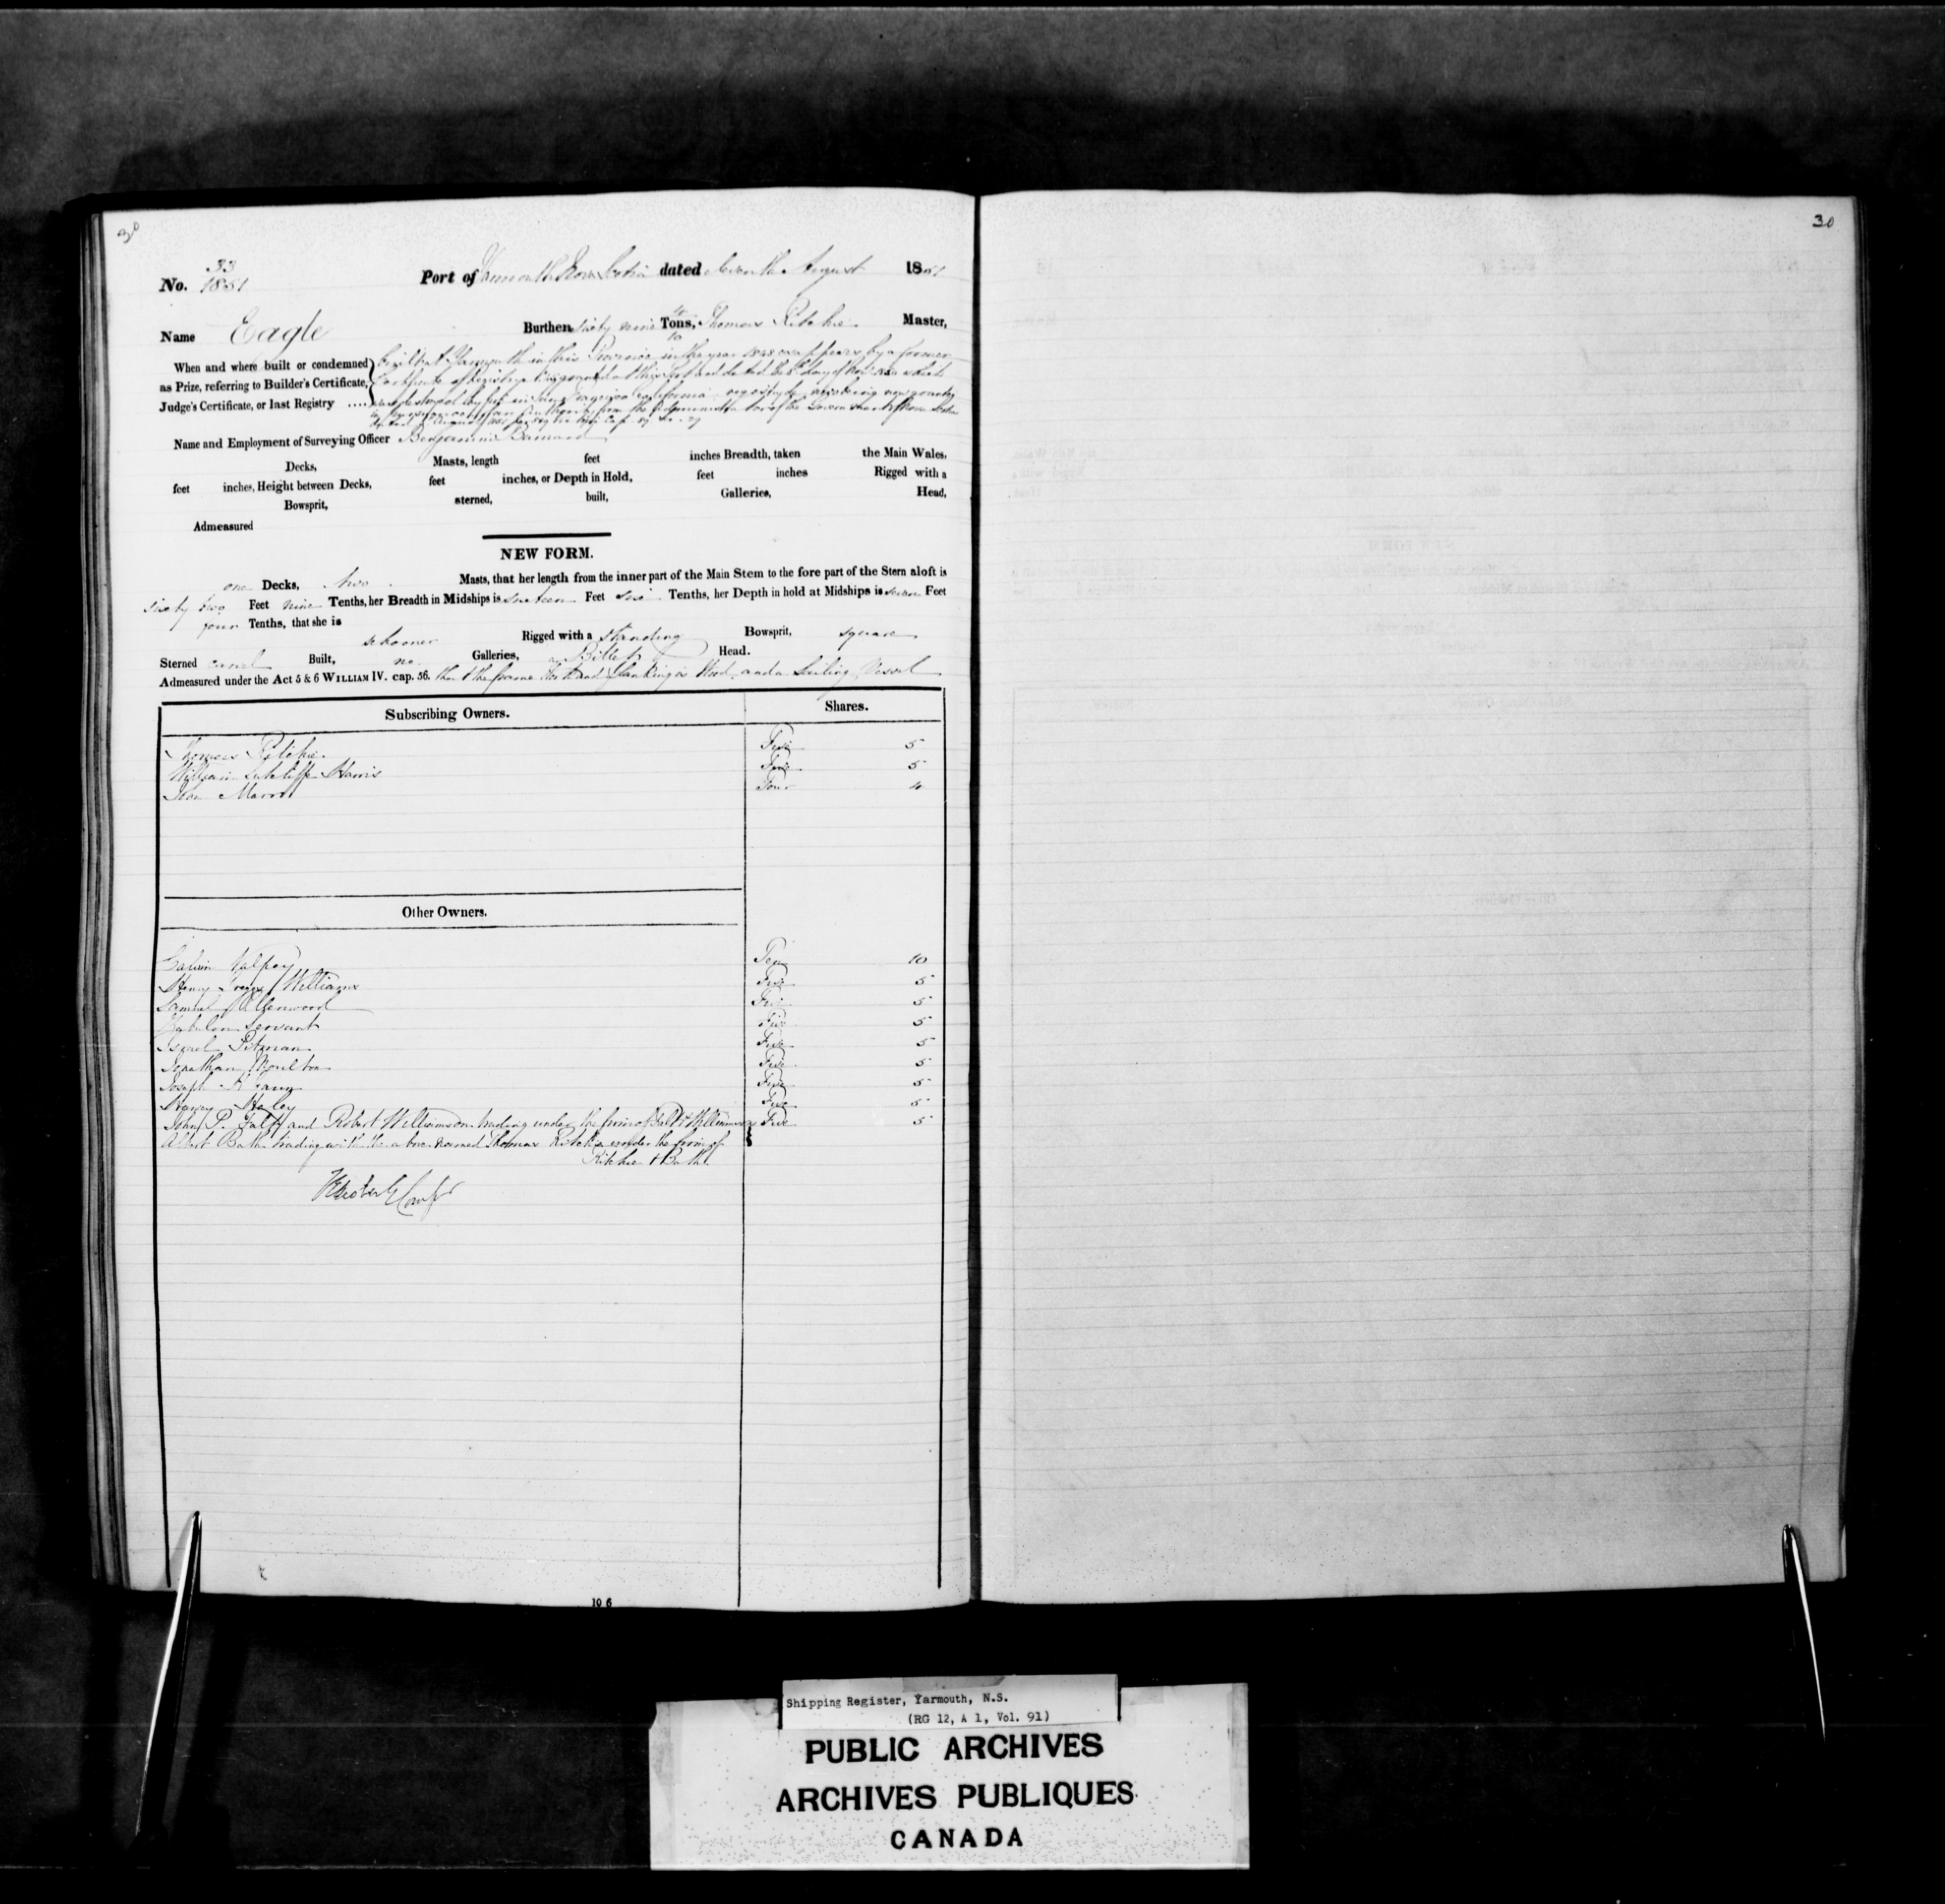 30
30
No. 33
1851
Port of Yarmouth Nova Scotia dated Seventh August 1851
Name Eagle Burthen sixty nine Tons, Thomas Ritchie Master,
When and where built or condemned
as Prize, referring to Builder's Certificate,
Judge's Certificate, or last Registry ....
built at Yarmouth in this Province in the year 1848 as appears by a former
Certificate of Registry granted at this Port and dated the day of
San Francisco California
Name and Employment of Surveying Officer Benjamin Barnard
Decks, Masts, length feet inches Breadth, taken the Main Wales,
feet inches, Height between Decks, feet inches, or Depth in Hold, feet inches Rigged with a
Bowsprit, sterned, built, Galleries, Head,
Admeasured
NEW FORM.
one Decks, two Masts, that her length from the inner part of the Main Stem to the fore part of the Stern aloft is
sixty two Feet nine Tenths, her Breadth in Midships is sixteen Feet six Tenths, her Depth in hold at Midships is seven Feet
four Tenths, that she is
schooner Rigged with a standing Bowsprit, square
Sterned carvel Built, no Galleries, a Billet Head.
Admeasured under the Act 5 & 6 WILLIAM IV. cap. 56. that the frame Work and planking is Wood and a Sailing Vessel
Subscribing Owners. Shares.
Thomas Ritchie Five 5
William Sutcliffe Harris Five 5
John Four 4
Other Owners.
Calvin Valpey Ten 10
Henry Williams Five 5
Samuel Ellenwood Five 5
Zebulon Servant Five 5
Israel Pitman Five 5
Jonathan Moulton Five 5
Joseph Five 5
Harvey Haley Five 5
John P. and Robert Williamson trading under the firm of & Williamson Five 5
Albert Bath trading with the above named Thomas Ritchie under the firm of
Ritchie & Bath
10 6
Shipping Register, Yarmouth, N.S.
(RG 12, A 1, Vol. 91)
PUBLIC ARCHIVES
ARCHIVES PUBLIQUES
CANADA